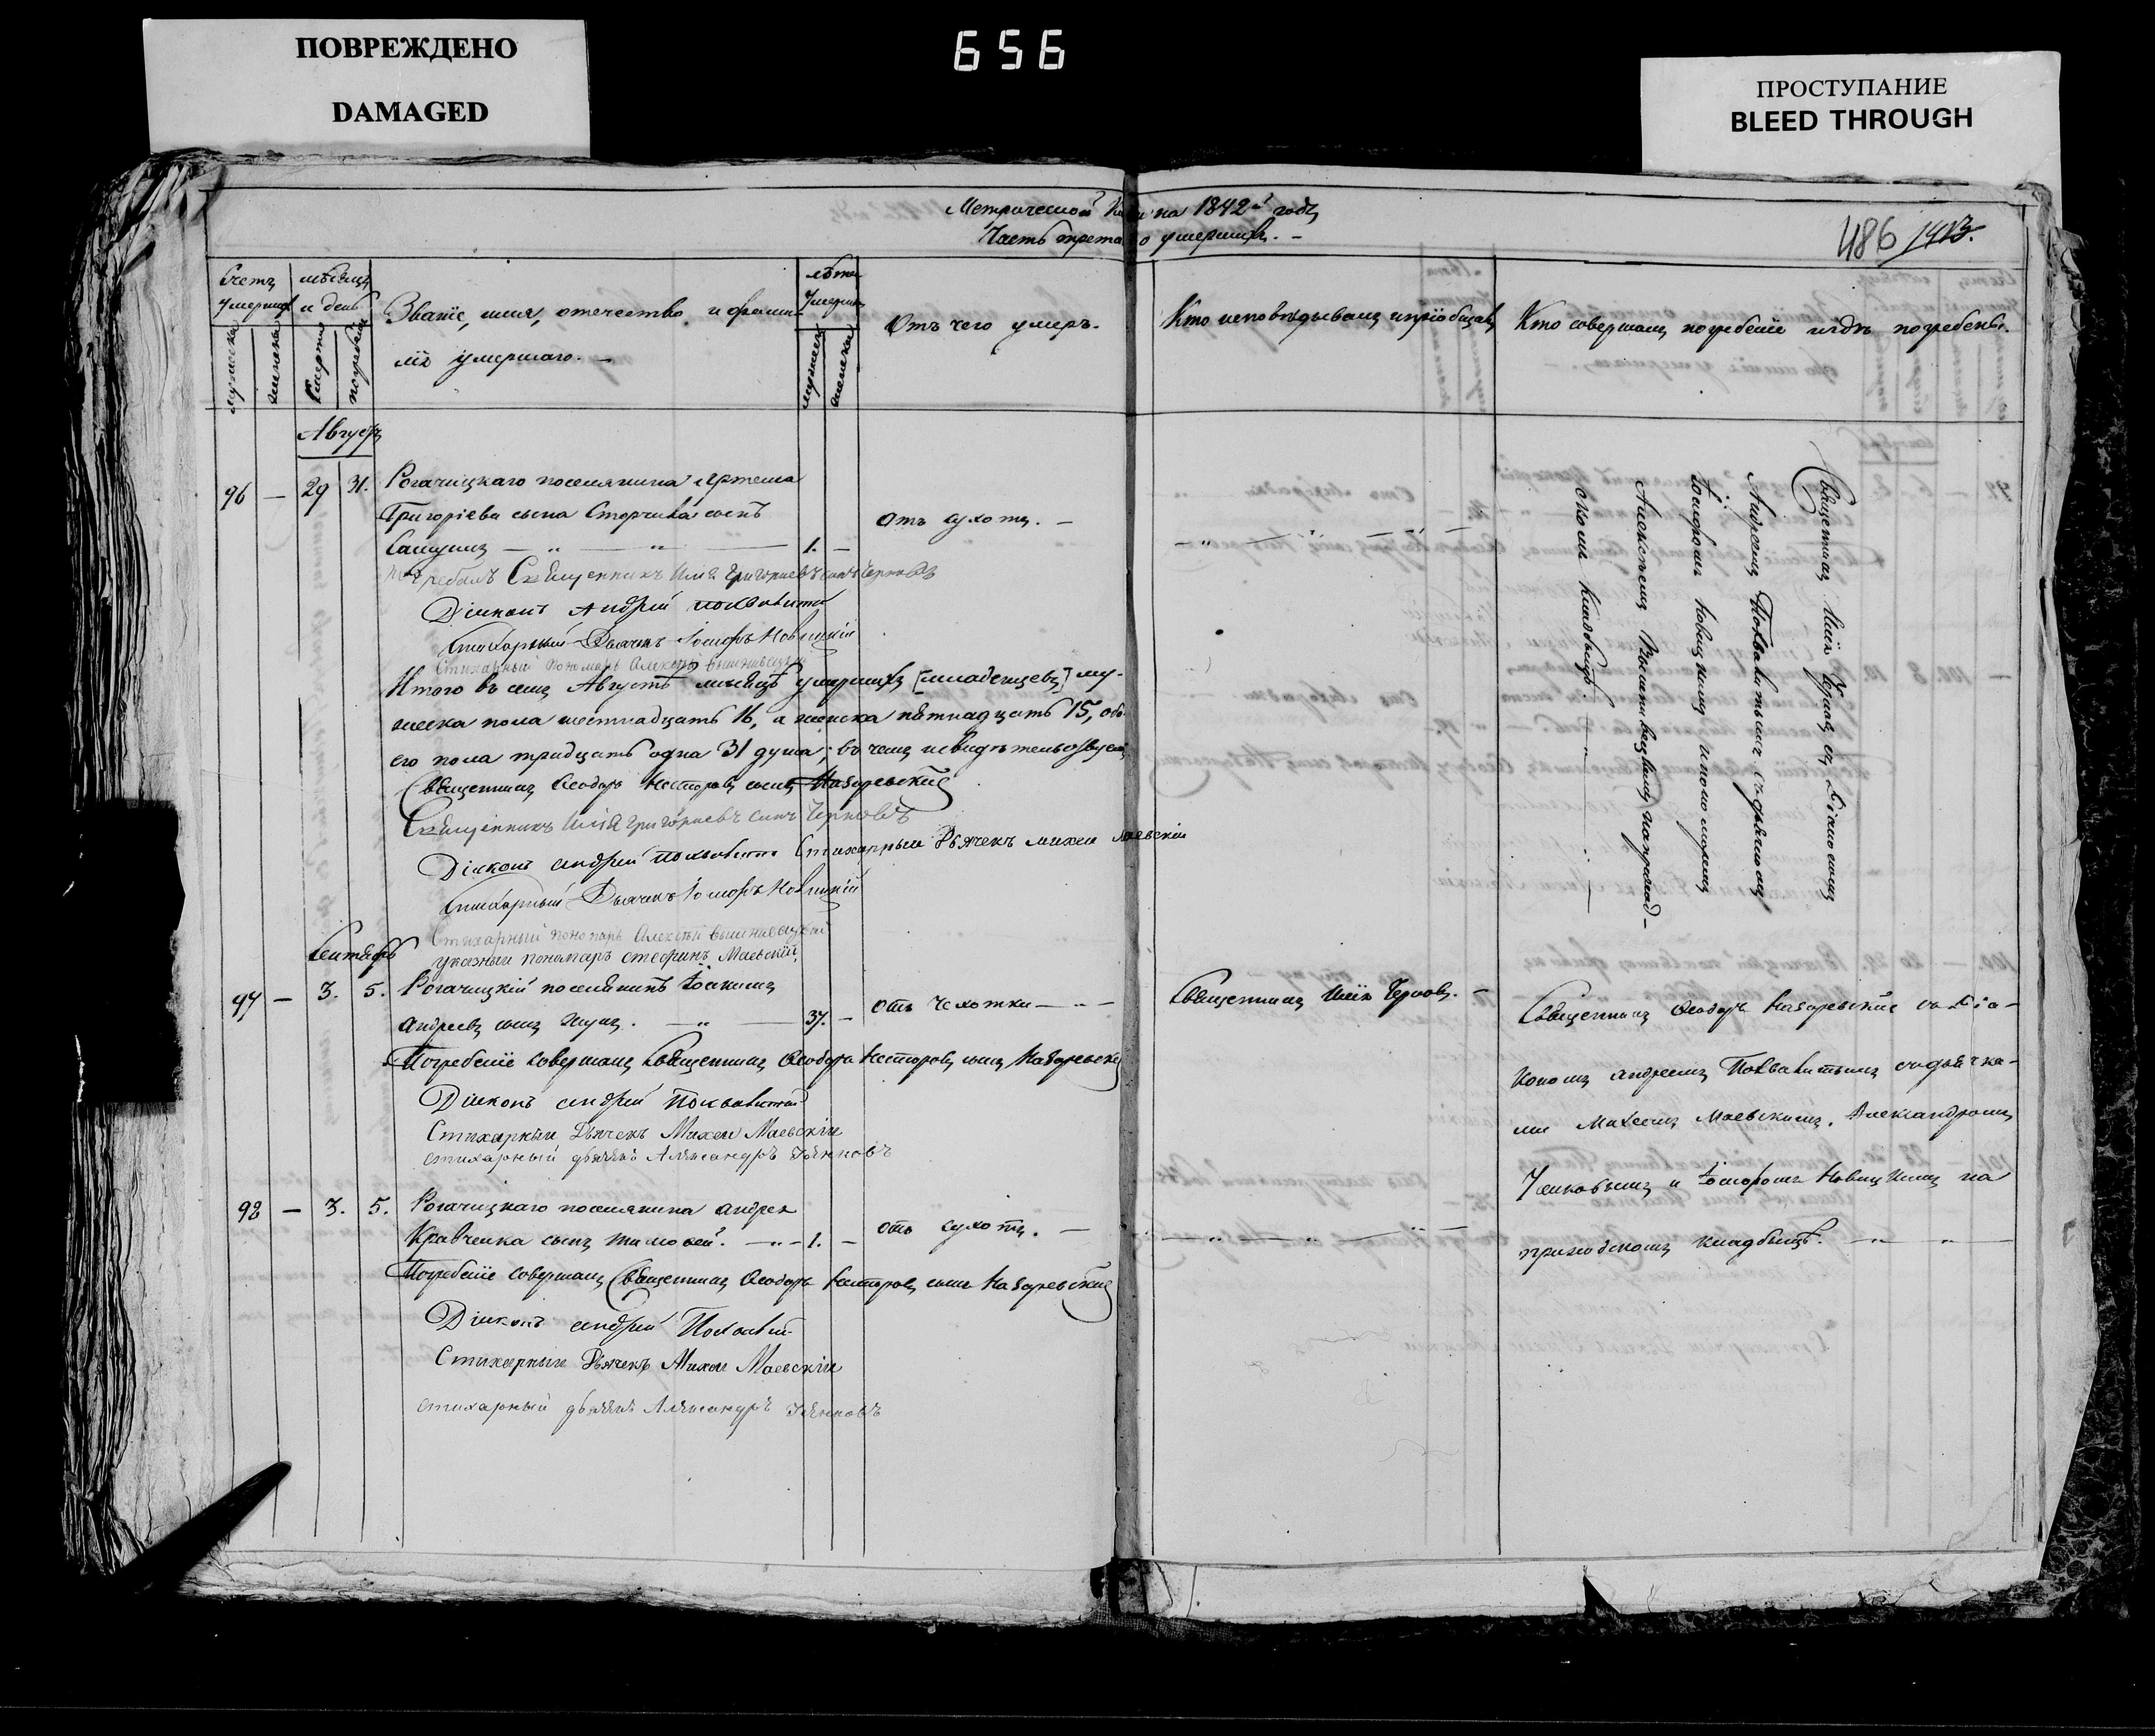 ПОВРЕЖДЕНО
DAMAGED
656
ПРОСТУПАНИЕ
BLEED THROUGH
Метрической на 1842й годъ
Часть третья о умершихъ. –
486 1413.
Счетъ умершихъ
мѣсяцъ и день
Званіе, имя, отечество, и фами-
лія умершаго. –
лѣта умерш
Отъ чего умеръ.
Кто исповѣдывалъ и пріобщалъ
Кто совершалъ погребеніе и гдѣ погребены.
мужеска
женска
смерти
погребен
мужеска
женска
Августъ
96 – 29 31. Рогачицкаго поселянина Артема
Григоріева сына Сторчака сынъ
Самуилъ – „ – „ – 1. – Отъ сухотъ. –
погребалъ Священникъ Илія Григориевъ сынъ Черновъ
Діаконъ Андрей Похвалитый
Стихарный Дьячекъ Іосифъ Новицкій
Стихарный пономарь Алексѣй
Итого въ семъ Августѣ мѣсяцѣ умершихъ [младенцевъ] му-
жеска пола шестнадцать 16, а женска пятнадцать 15, обо-
его пола тридцать одна 31 душа; въ чемъ и свидѣтельствуемъ
Священникъ Ѳеодоръ Несторовъ сынъ Назаревскій
Священникъ Илія Григориевъ сынъ Черновъ
Діаконъ Андрей Похвалитый Стихарный Дьячекъ Михей Маевскій
Стихарный Дьячекъ Іосифъ Новицкій
Стихарный пономарь Алексѣй Вышневецкій
указный пономарь Стефанъ Маевскій
Священникъ Илія Черновъ съ Діакономъ
Андреемъ Похвалитымъ съ дьячкомъ
Іосифомъ Новицкимъ и пономаремъ
Алексѣемъ Вышневецкимъ на приход-
скомъ кладбищѣ. –
Сентябрь
97 – 3. 5. Рогачицкій поселянинъ Іоакимъ
Андреевъ сынъ – „ – 37. – отъ чахотки – „ – Священникъ Илія Черновъ. –
Погребеніе совершалъ Священникъ Ѳеодоръ Несторовъ сынъ Назаревскій
Діаконъ Андрей Похвалитый
Стихарный Дьячекъ Михей Маевскій
стихарный дьячекъ Александръ
Священникъ Ѳеодоръ Назаревскій съ Діа-
кономъ Андреемъ Похвалитымъ съ дьячка-
ми Михеемъ Маевскимъ, Александромъ
и Іосифомъ Новицкимъ на
приходскомъ кладбищѣ. – „ – „ –
98 – 3. 5. Рогачицкаго поселянина Андрея
Кравченка сынъ Тимоѳей. – „ – 1. – отъ сухотъ. –
Погребеніе совершалъ Священникъ Ѳеодоръ Несторовъ сынъ Назаревскій
Діаконъ Андрей Похвалитый
Стихарный Дьячекъ Михей Маевскій
стихарный дьячекъ Александръ